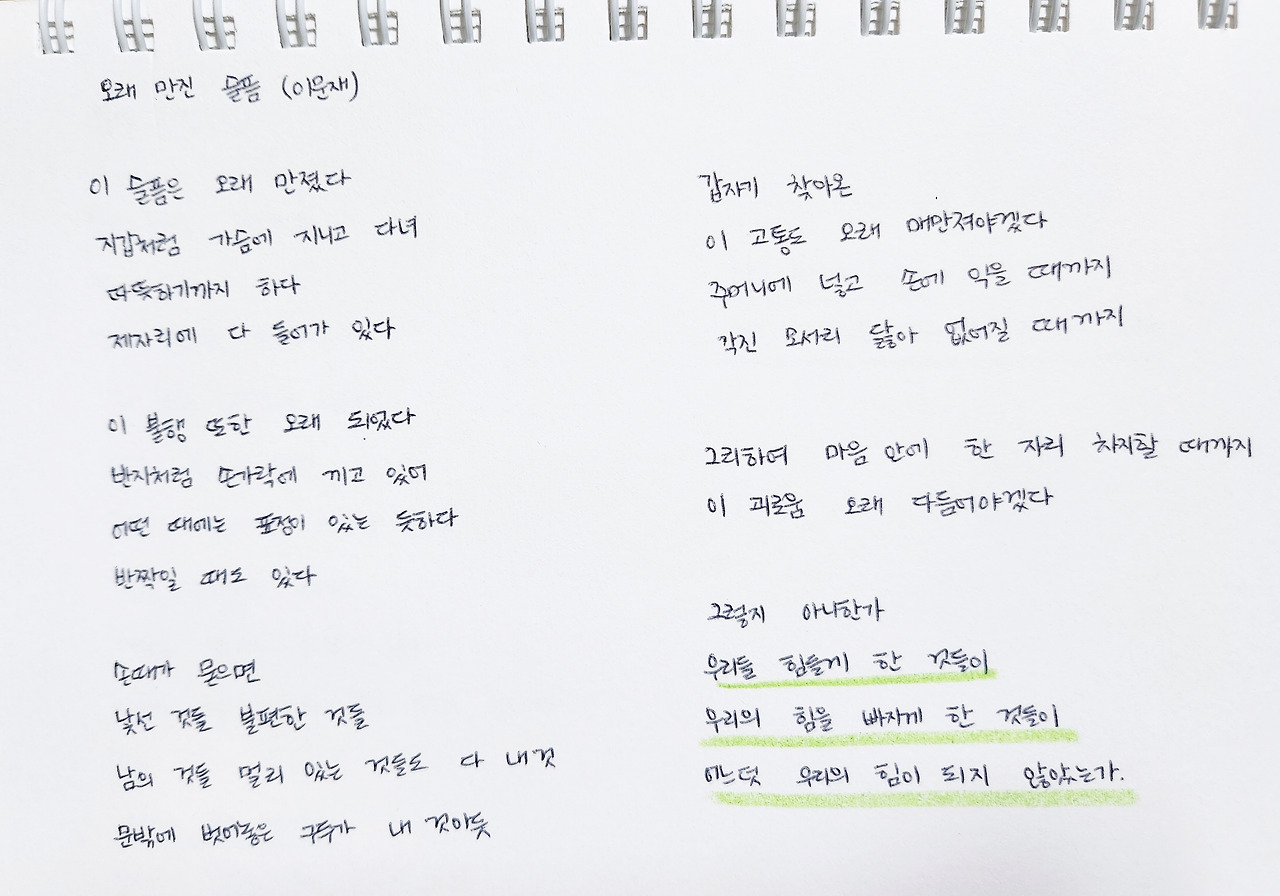 오래 만진 슬픔 (이문재)
이 슬픔은 오래 만졌다
지갑처럼 가슴에 지니고 다녀
따뜻하기까지 하다
제자리에 다 들어가 있다
이 불행 또한 오래 되었다
반지처럼 손가락에 끼고 있어
어떤 때에는 표정이 있는 듯하다
반짝일 때도 있다
손때가 묻으면
낯선 것들 불편한 것들
남의 것들 멀리 있는 것들도 다 내것
문밖에 벗어놓은 구두가 내 것이듯
갑자기 찾아온
이 고통도 오래 매만져야겠다
주머니에 넣고 손에 익을 때까지
각진 모서리 닳아 없어질 때까지
그리하여 마음 안에 한 자리 차지할 때까지
이 괴로움 오래 다듬어야겠다
그렇지 아니한가
우리들 힘들게 한 것들이
우리의 힘을 빠지게 한 것들이
어느덧 우리의 힘이 되지 않았는가.